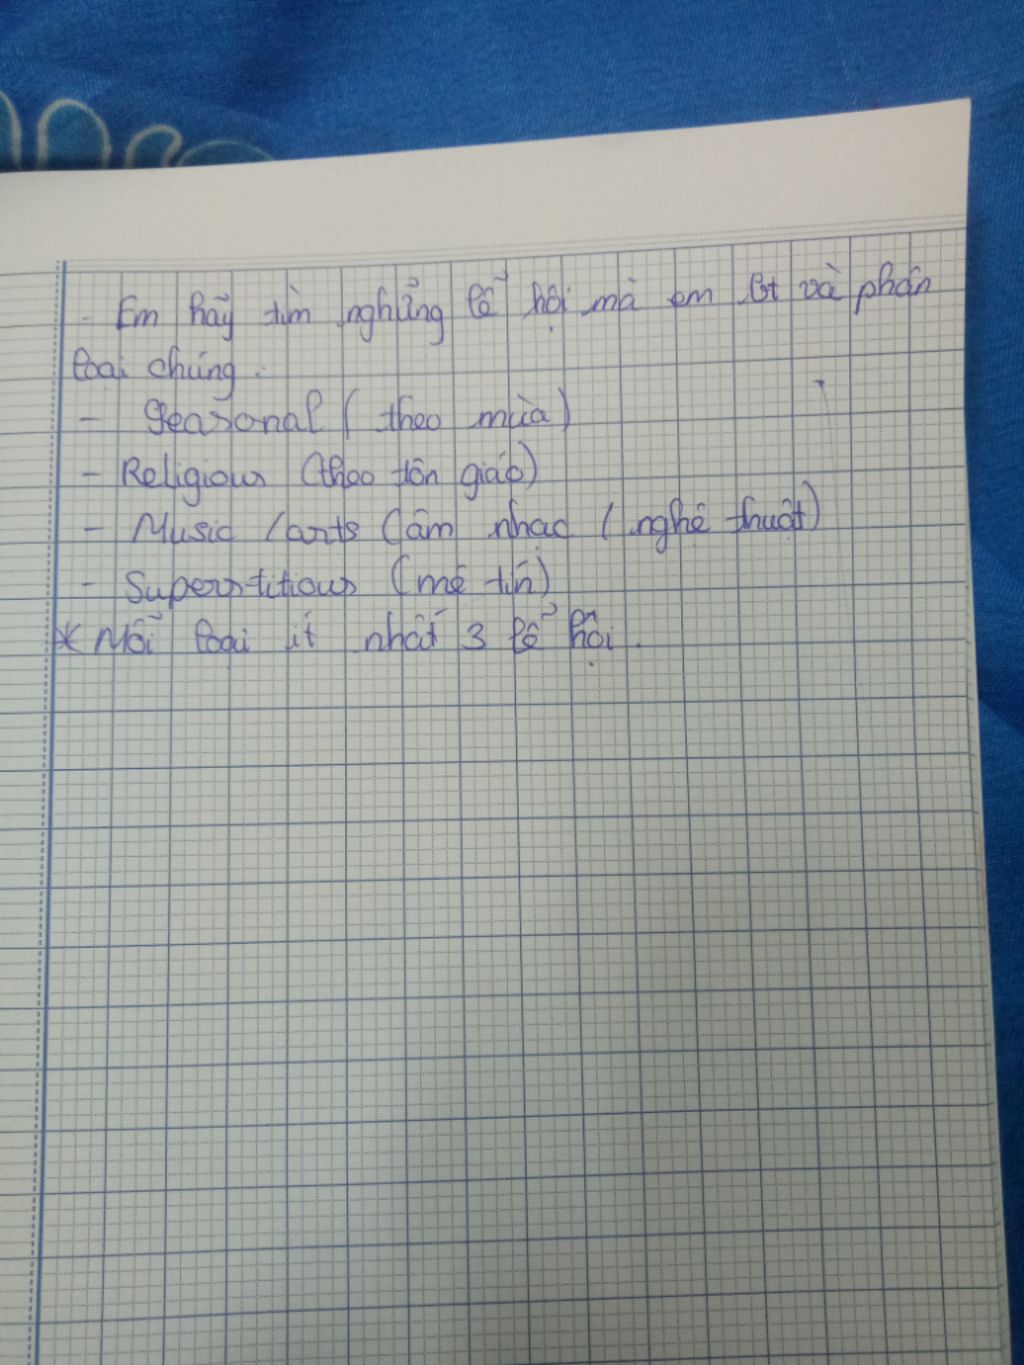 - Em hãy tìm những lễ hội mà em bt và phân
loại chúng.
- Seasonal ( theo mùa)
- Religious (theo tôn giáo)
- Music /arts (âm nhạc / nghệ thuật)
- Superstitious (mê tín)
* Mỗi loại ít nhất 3 lễ hội.